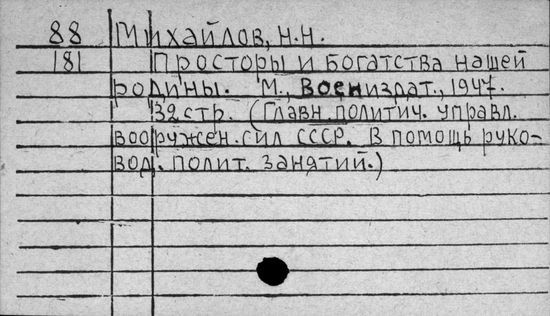 88 Михайлов, Н.Н.
181 Просторы и богатства нашей
родины. М., Воениздат., 1947.
32 стр. (Главн. политич. управл.
вооружен. сил СССР. В помощь руко-
вод. полит. занятий.)